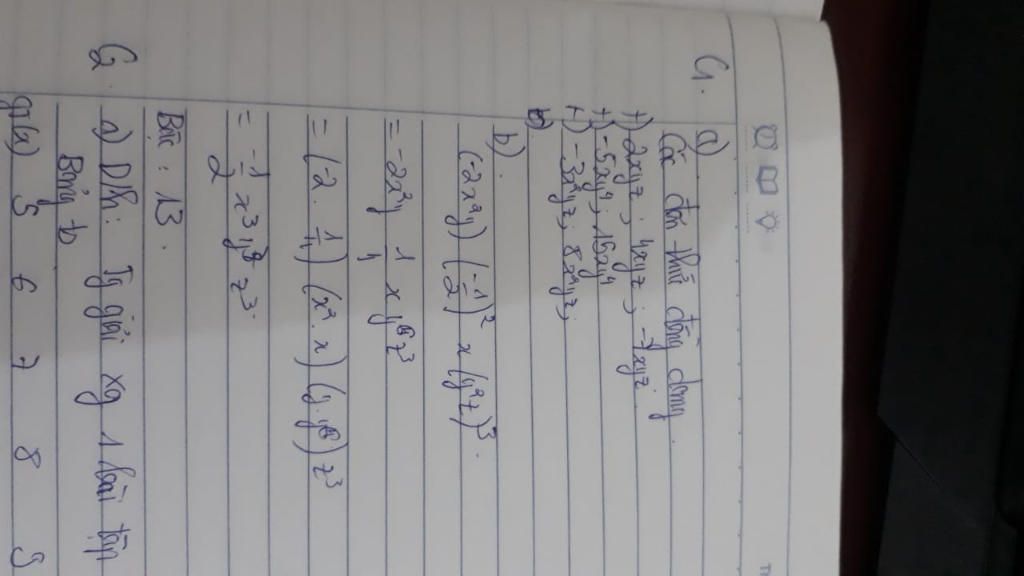 C1. a)
Các đơn thức đồng dạng
+) 2xyz ; 4xyz ; -7xyz.
+) -5xy⁴ ; 15xy⁴
+) -3x²yz ; 8x²yz ;
b)
(-2x²y) (-1/2)² x (y²z)³.
= -2x²y 1/4 x y⁶z³
= (-2 . 1/4) (x² . x) (y . y⁶) z³
= -1/2 x³ y z³.
Bậc : 13.
C2 a) Dh: Tg giải xg 1 bài tập
Bảng
5 6 7 8 9